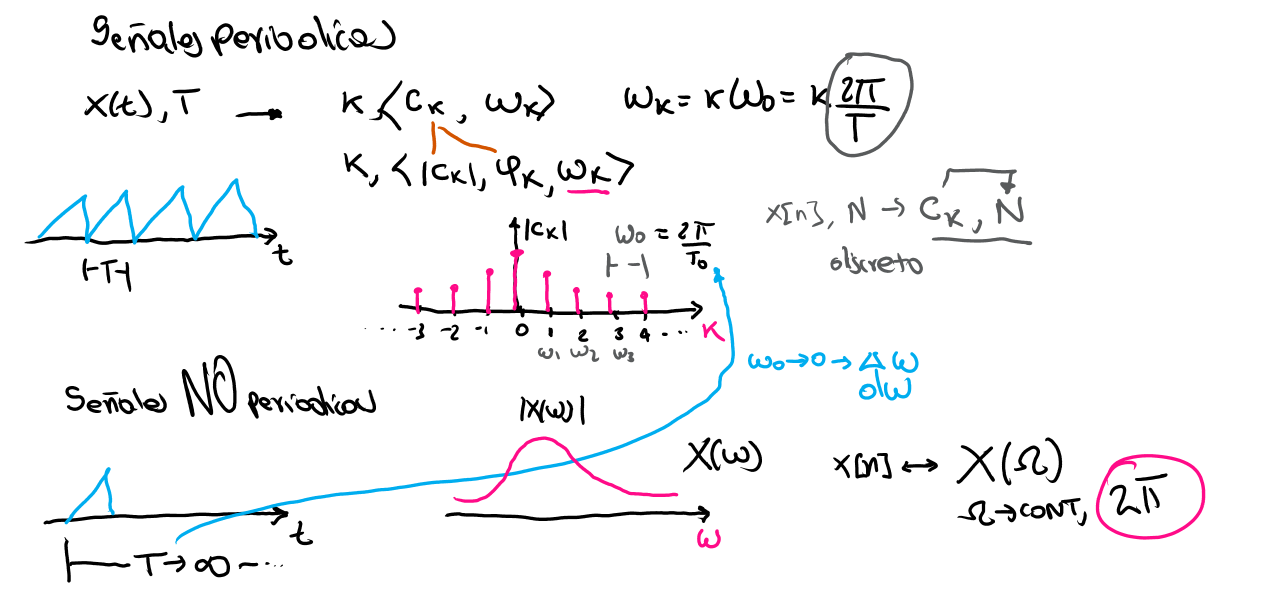 Señales periodicas
x(t), T → K, <C_K, ω_K>    ω_K = K ω_0 = K 2π/T
K, <|C_K|, φ_K, ω_K>
x[n], N → C_K, N
discreto
t
|-T-|
|C_K|    ω_0 = 2π/T_0
|-|
... -3 -2 -1 0 1 2 3 4 ... K
ω_1 ω_2 ω_3
ω_0 → 0 → Δω
dω
Señales NO periodicas
|X(ω)|
X(ω)
x[n] ↔ X(Ω)
Ω → CONT, 2π
t
ω
|— T → ∞ ~ ...